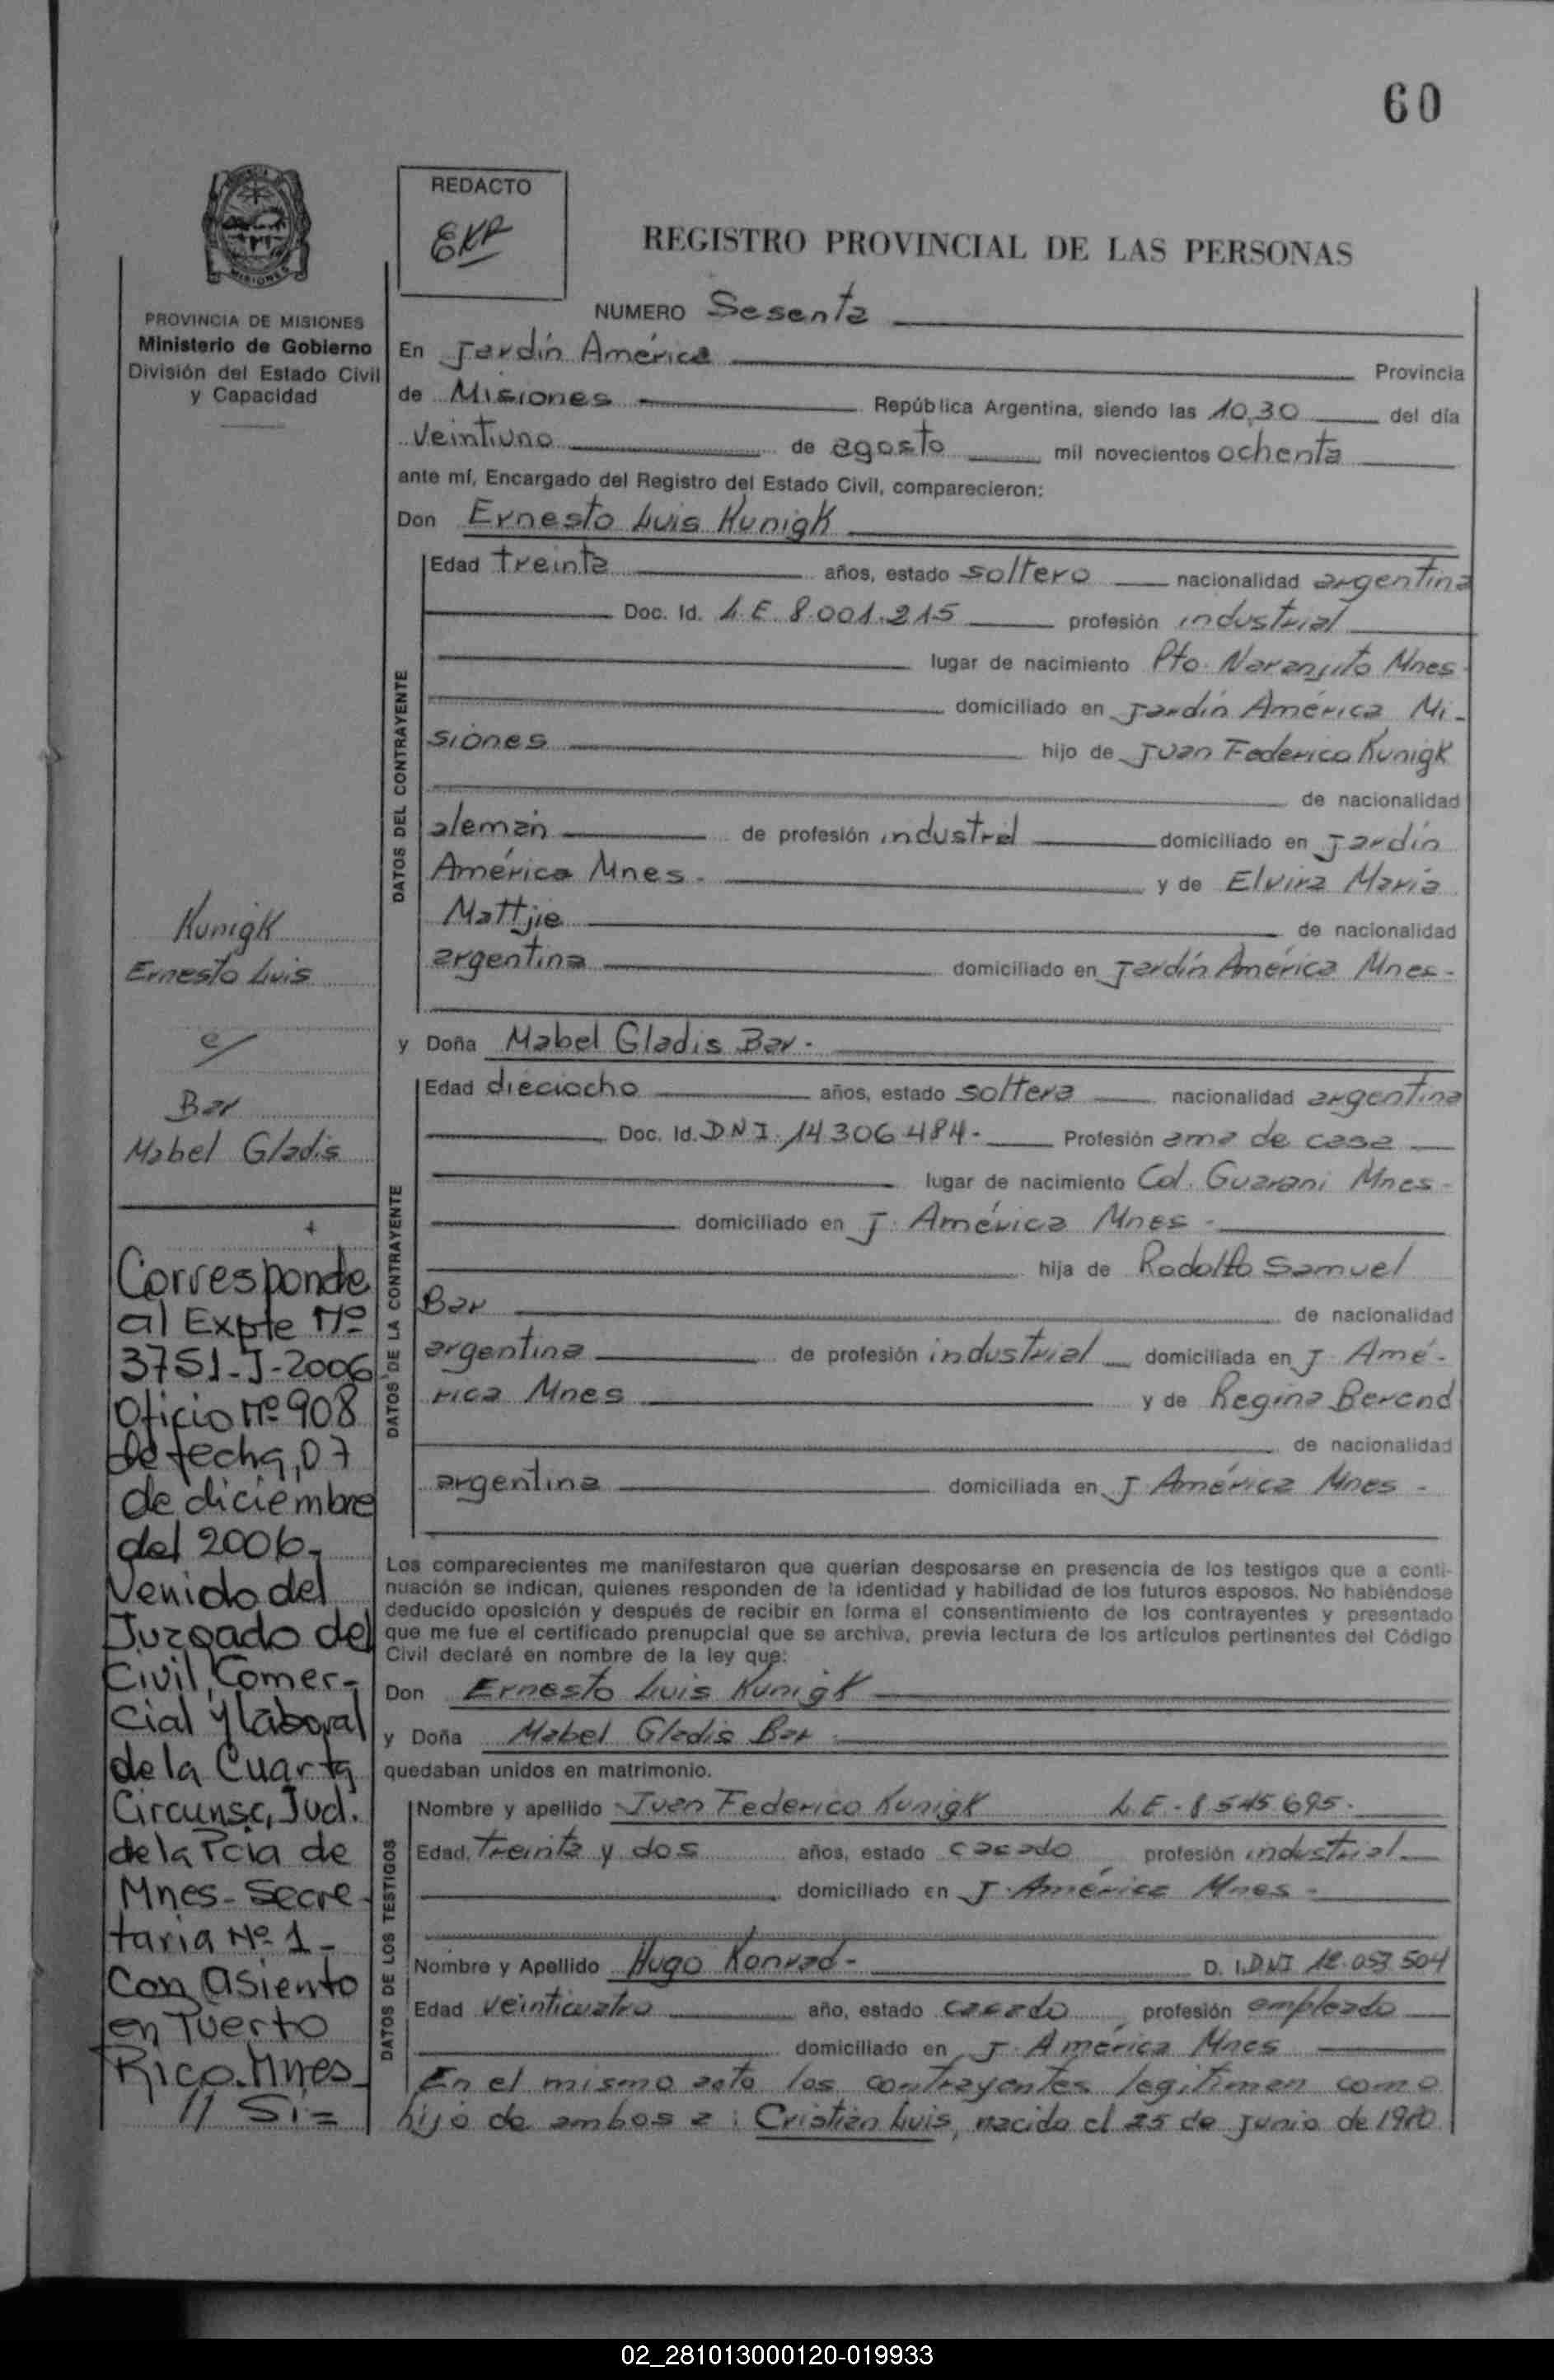 60
REDACTO
REGISTRO PROVINCIAL DE LAS PERSONAS
MISIONES
PROVINCIA DE MISIONES
Ministerio de Gobierno
División del Estado Civil
y Capacidad
NUMERO Sesenta
En Jardín América Provincia
de Misiones República Argentina, siendo las 10,30 del día
veintiuno de agosto mil novecientos ochenta
ante mí, Encargado del Registro del Estado Civil, comparecieron:
Don Ernesto Luis Kunigk
DATOS DEL CONTRAYENTE
Edad treinta años, estado soltero nacionalidad argentina
Doc. Id. L.E. 8.001.215 profesión industrial
lugar de nacimiento Pto. Naranjito Mnes.
domiciliado en Jardín América Mi-
siones hijo de Juan Federico Kunigk
de nacionalidad
alemán de profesión industrial domiciliado en Jardín
América Mnes. y de Elvira María
Mattjie de nacionalidad
argentina domiciliado en Jardín América Mnes-
y Doña Mabel Gladis Bar.
DATOS DE LA CONTRAYENTE
Edad dieciocho años, estado soltera nacionalidad argentina
Doc. Id. DNI. 14306484- Profesión ama de casa
lugar de nacimiento Col. Guarani Mnes-
domiciliado en J. América Mnes-
hija de Rodolfo Samuel
Bar de nacionalidad
argentina de profesión industrial domiciliada en J. Amé-
rica Mnes y de Regina Berend
de nacionalidad
argentina domiciliada en J. América Mnes-
Los comparecientes me manifestaron que querían desposarse en presencia de los testigos que a conti-
nuación se indican, quienes responden de la identidad y habilidad de los futuros esposos. No habiéndose
deducido oposición y después de recibir en forma el consentimiento de los contrayentes y presentado
que me fue el certificado prenupcial que se archiva, previa lectura de los artículos pertinentes del Código
Civil declaré en nombre de la ley que:
Don Ernesto Luis Kunigk
y Doña Mabel Gladis Bar
quedaban unidos en matrimonio.
DATOS DE LOS TESTIGOS
Nombre y apellido Juan Federico Kunigk L.E-8.545.695-
Edad, treinta y dos años, estado casado, profesión industrial
domiciliado en J. América Mnes-
Nombre y Apellido Hugo Konrad- D. I. DNI 12.053.504
Edad veinticuatro año, estado casado, profesión empleado
domiciliado en J. América Mnes
En el mismo acto los contrayentes legitiman como
hijo de ambos a: Cristian Luis, nacido el 25 de junio de 1980
Kunigk
Ernesto Luis
c/
Bar
Mabel Gladis
Corresponde
al Expte Nº
3751-J-2006
Oficio Nº 908
de fecha, 07
de diciembre
del 2006-
Venido del
Juzgado del
Civil, Comer-
cial y laboral
de la Cuarta
Circunsc, Jud.
de la Pcia de
Mnes- Secre-
taria Nº 1-
Con asiento
en Puerto
Rico. Mnes
// Si=
02_281013000120-019933